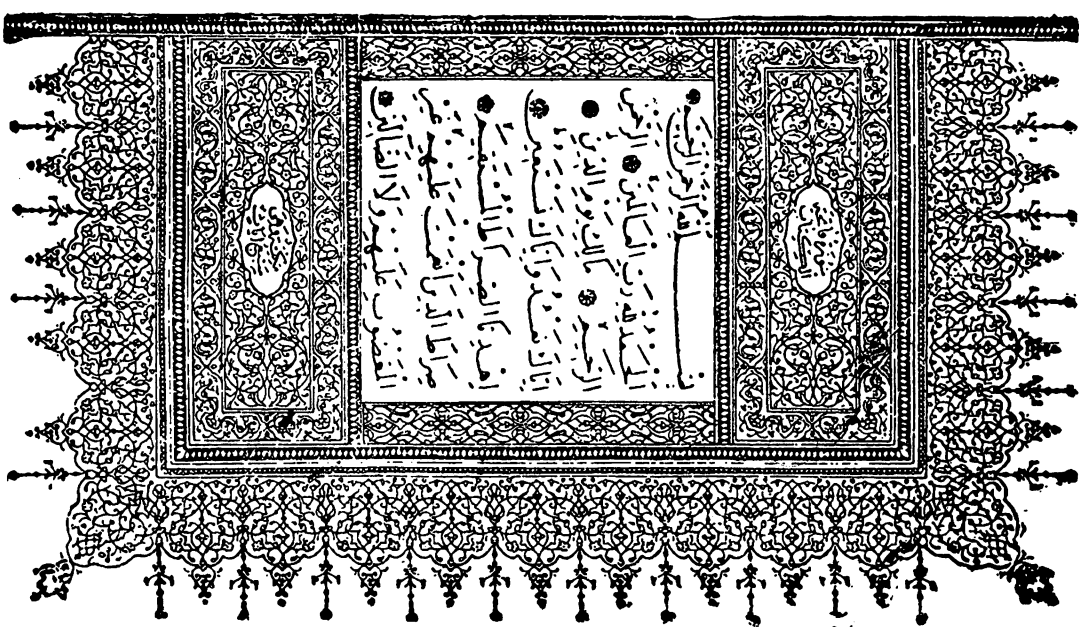 سورة فاتحة الكتاب
بسم الله الرحمن الرحيم
الحمد لله رب العالمين الرحمن
الرحيم ملك يوم الدين
اياك نعبد واياك نستعين
اهدنا الصراط المستقيم
صراط الذين انعمت عليهم غير
المغضوب عليهم ولا الضالين